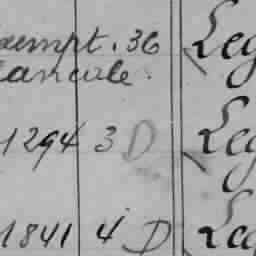 exempt. 36 Leg
lancole.
1294 3 D Leg
1841 4 D Leg